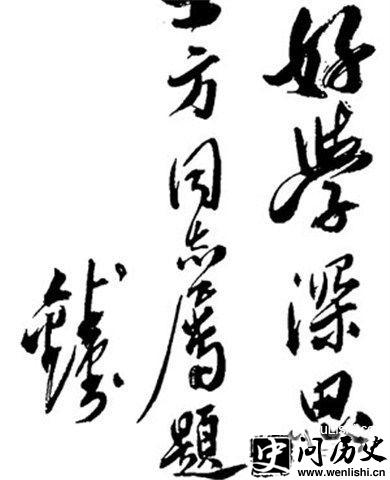 好学深思
方同志属題
问历史
www.wenlishi.cn